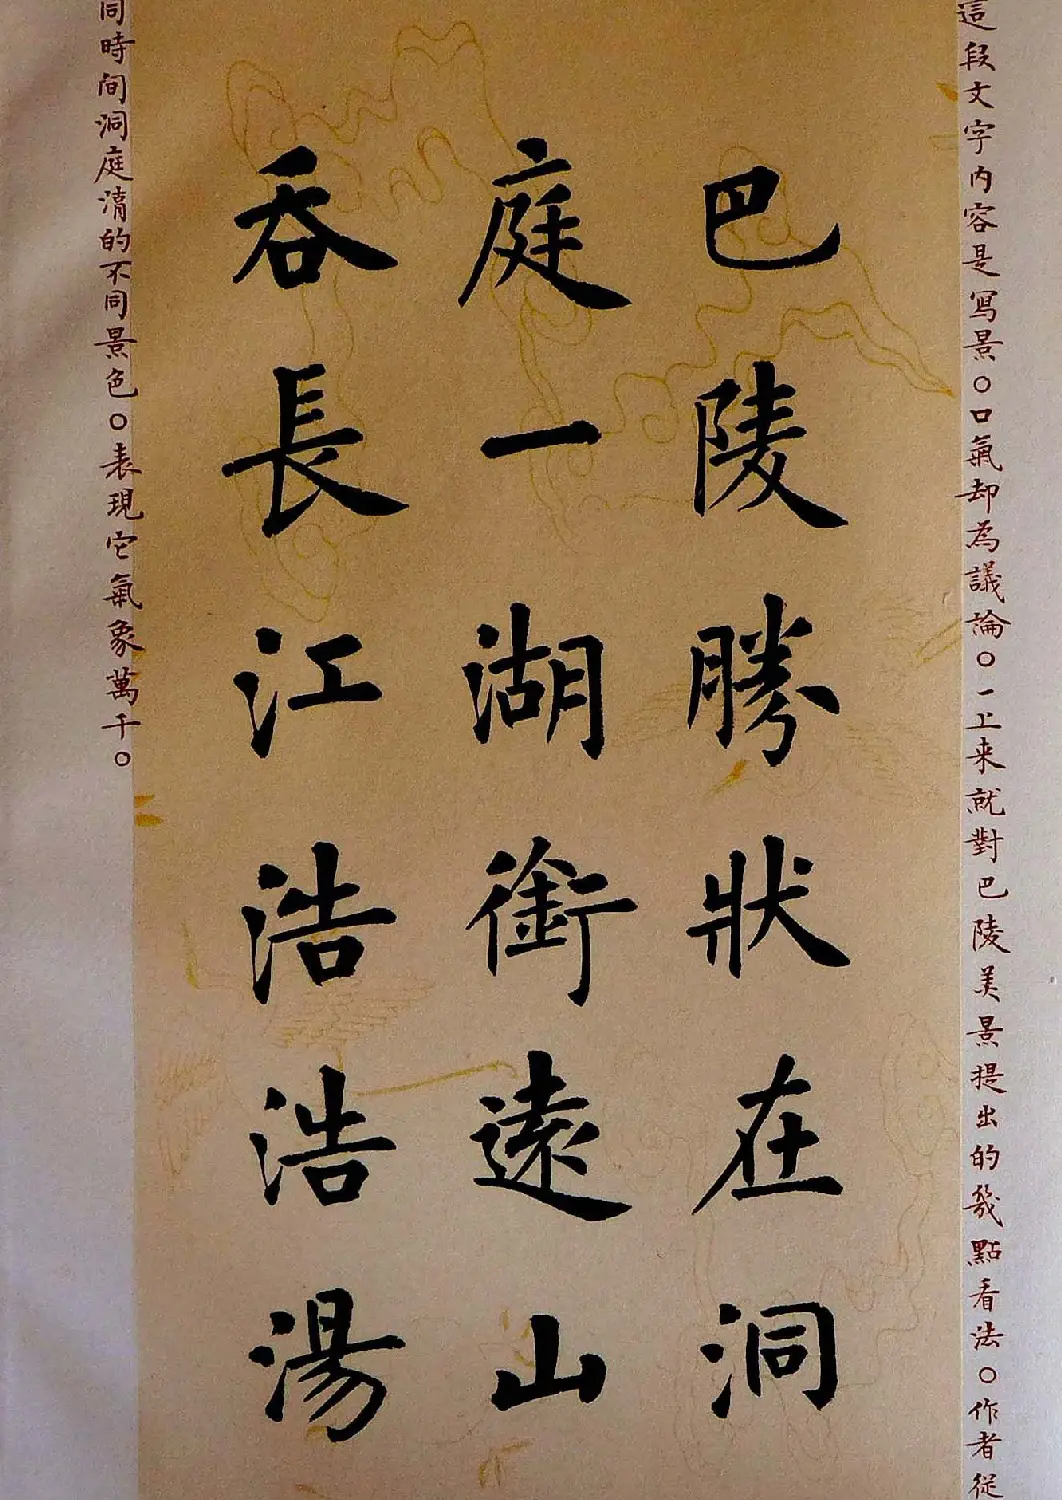 這段文字内容是寫景。口氣却為議論。一上来就對巴陵美景提出的幾點看法。作者從
巴陵勝狀在洞
庭一湖銜遠山
吞長江浩浩湯
同時间洞庭清的不同景色。表現它氣象萬千。